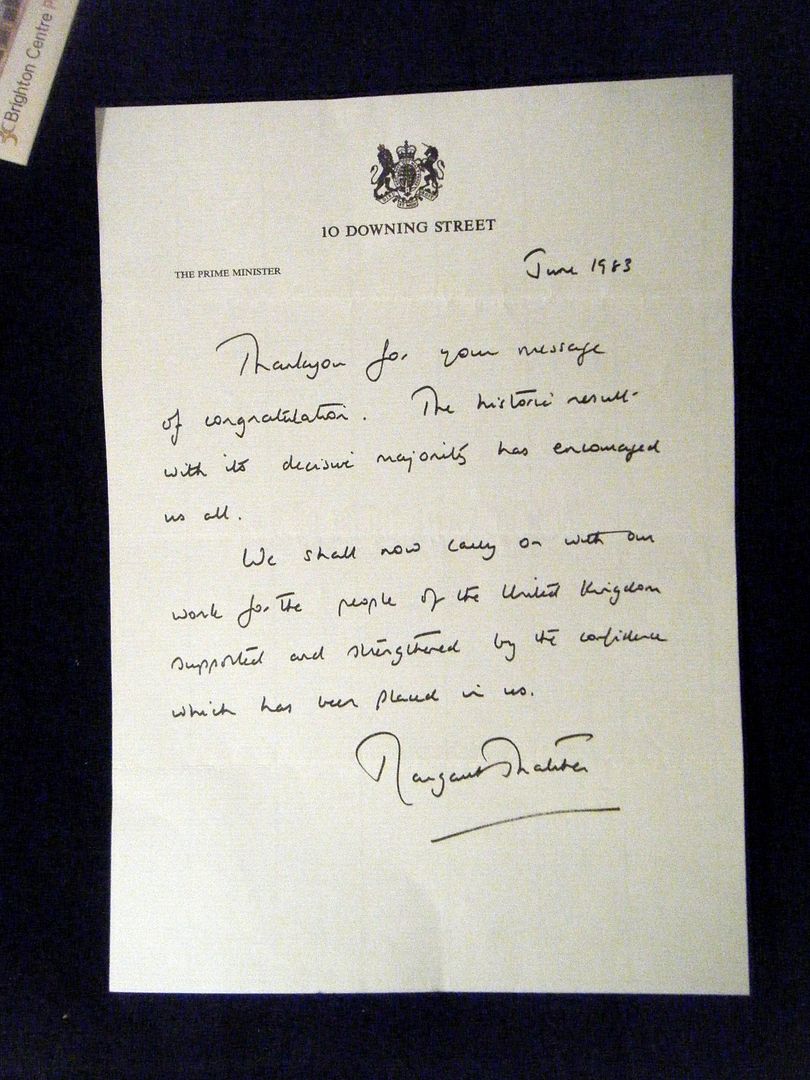 Brighton Centre
10 DOWNING STREET
THE PRIME MINISTER
June 1983
Thankyou for your message
of congratulation. The historic result
with its decisive majority has encouraged
us all.
We shall now carry on with our
work for the people of the United Kingdom
supported and strengthened by the confidence
which has been placed in us.
Margaret Thatcher